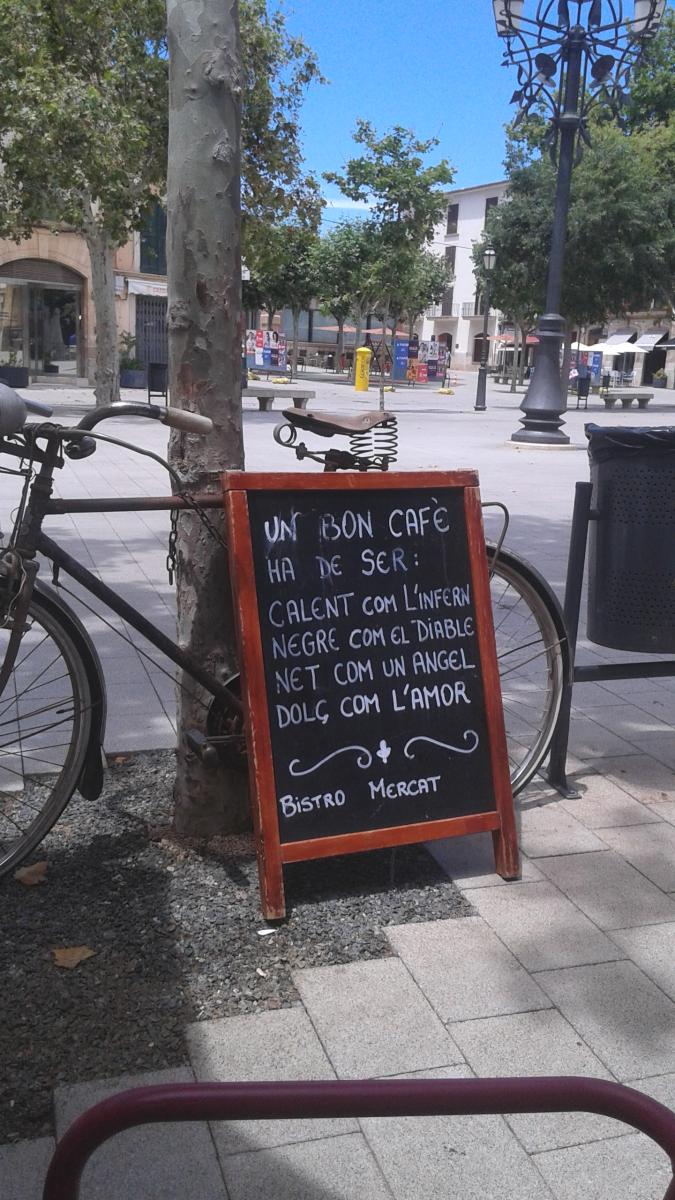 UN BON CAFÈ
HA DE SER:
CALENT COM L'INFERN
NEGRE COM EL DIABLE
NET COM UN ANGEL
DOLÇ COM L'AMOR
BISTRO MERCAT